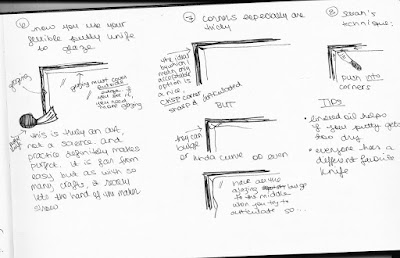 ⑥ now you use your
flexible putty knife
to glaze
glazing
glazing must cover
you see it,
you need
more glazing
this is truly an art,
not a science. and
practice definitely makes
perfect. it is far from
easy but as with so
many crafts, it really
lets the hand of the maker
show
⑦ corners especially are
tricky
the ideal
by which i
mean only
acceptable
option is
a nice
crisp corner
sharp & articulated
BUT
they can
bulge
or kinda curve or even
have all the
glazing bulge
to the middle
when you try to
articulate so...
⑧
technique:
push into
corners
TIPS
• linseed oil helps
if your putty gets
too dry
• everyone has a
different favorite
knife